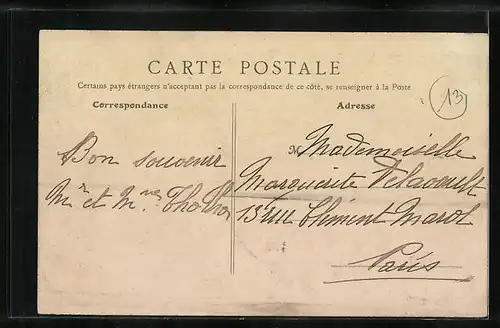 CARTE POSTALE
Certains pays étrangers n'acceptant pas la correspondance de ce côté, se renseigner à la Poste
Correspondance
Adresse
13
Bon souvenir
Mr et Mme
M Mademoiselle
Marguerite
13 rue Clément Marot
Paris